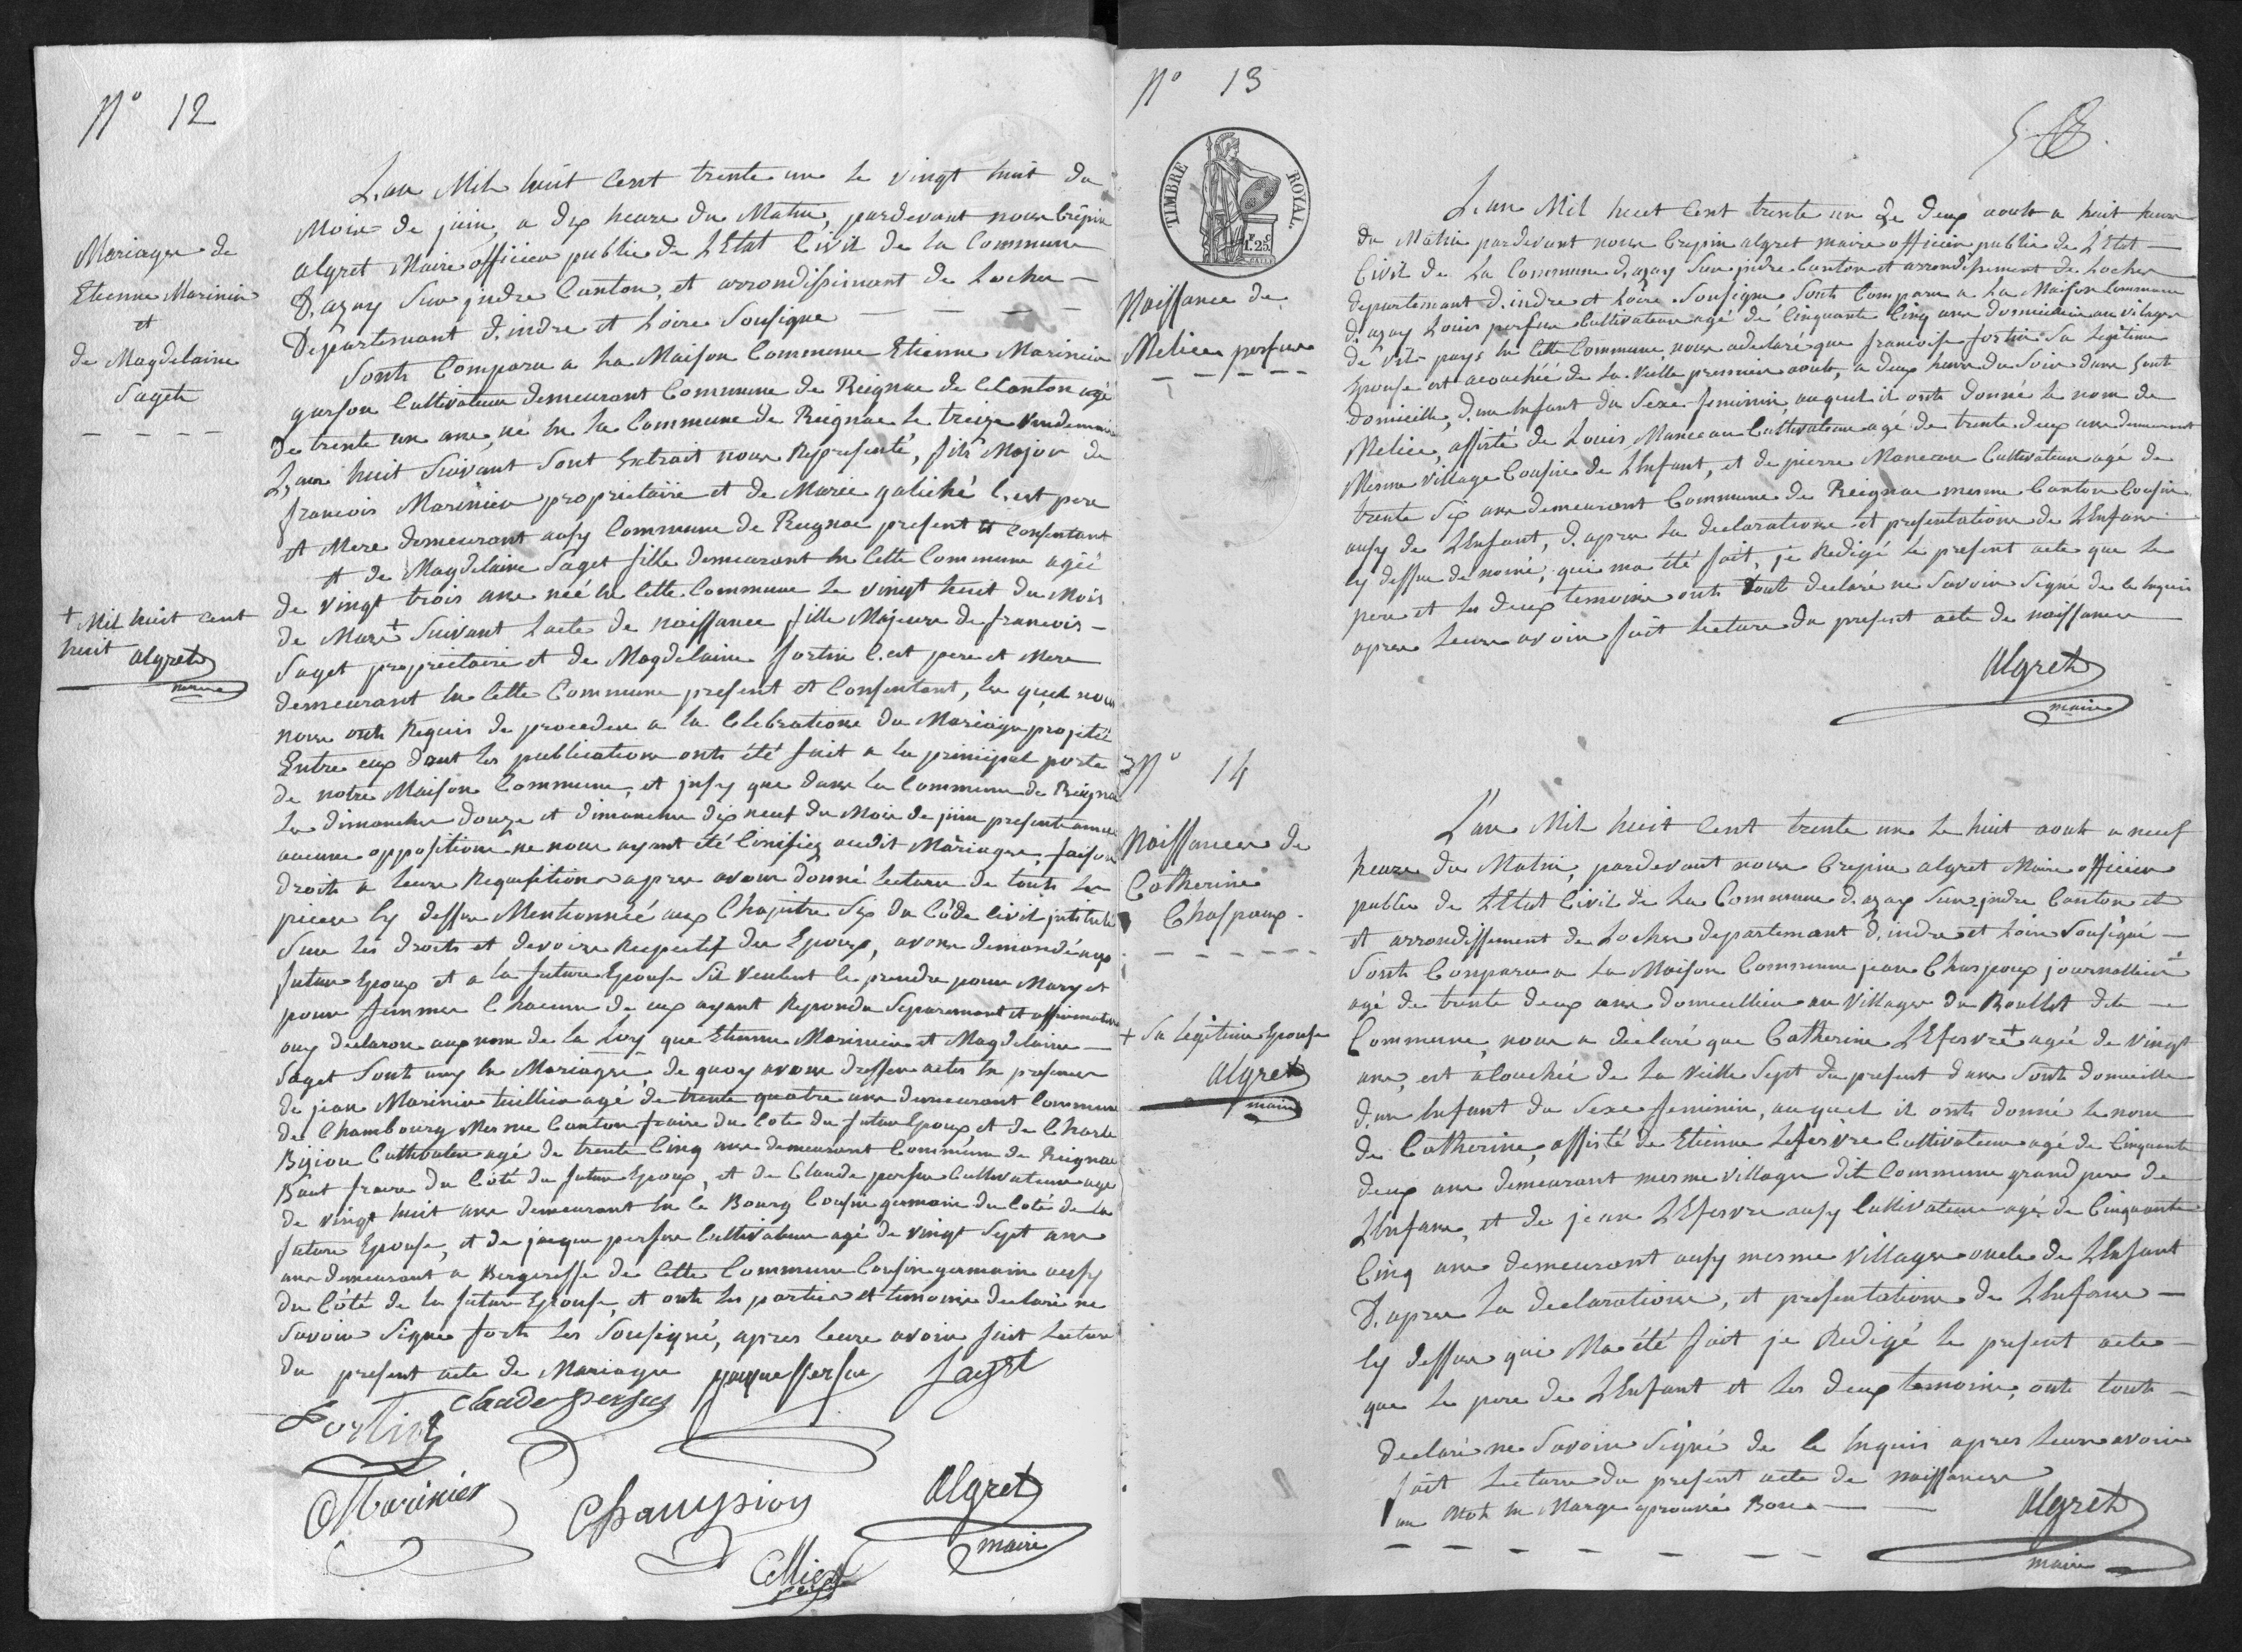 N° 12
Mariage de
Etienne Marinier
et
de Magdelaine
Saget
+ Mil huit cent
huit Algret
maire
L'an Mil huit Cent trente un le vingt huit du
Mois de juin, a dix heure du Matin, pardevant nous Crêpin
algret Maire officier public de L'Etat Civil de la Commune
D'azay sur jndre Canton, et arrondissement de Loches
Departement d'indre et Loire Sousigne
Sont Comparu a La Maison Commune Etienne Marinier
garson Cultivateur demeurant Commune de Reignac de Canton agé
de trente un ans, né en la Commune de Reignac le treize Vendemiaire
L'an huit Suivant Sont Extrait nous Representé, fils Major de
francois Marinier proprietaire et de Marie galiché C'est pere
et Mere demeurant ausy Commune de Reignac present et Consentant
et de Magdelaine Saget fille demeurant en Cette Commune agéé
de vingt trois ans néé en Cette Commune le vingt huit du Mois
de Mars + Suivant Lacte de naissance fille Majeure de francois
Saget proprietaire et de Magdelaine fortin C'est pere et Mere
demeurant en Cette Commune present et Consentant, les quel nous
nous onts Requis de proceder a la Celebrations du Mariage projeté
Entre eux dont les publications onts été fait a la principal porte
de notre Maison Commune, et jnsy que dans la Commune de Reignac
Les dimanches douze et dimanche dix neuf du Mois de juin presente année
aucune opposition ne nous ayant été Cinifiez audit Mariage, faison
droits a leurs Requisition apres avoir donné lecture de touts les
pieces Cy dessus Mentionnéé aux Chapitre Six du Côde Civil jntitulé
Sur les droits et devoirs Respectif des Epoux, avons demandé aux
futur Epoux et a la future Epouse Sil veulent Ce prendre pour Mary et
pour femmes Chacun de eux ayant Repondu Separement et affirmative
avy declaron aux nom de la Loy que Etienne Marinier et Magdelaine
Saget Sont uny en Mariage, de quoy avons dresser actes en presences
de jean Marinier tuillier agé de trente quatre ans demeurant Commune
de Chambourg Mesme Canton fraire du Coté du futur Epoux et de Charle
Bijiou Cultivateur agé de trente Cinq ans demeurant Commune de Reignac
Baut fraire du Côté du futur Epoux, et de Claude persus Cultivateur agé
de vingt huit ans demeurant en Ce Bourg Cousin germain du Coté de la
future Epouse, et de jacque persus Cultivateur agé de vingt Sept ans
ans demeurant a Bergeresse de Cette Commune Cousin germain ausy
du Côté de la future Epouse, et onts les parties et temoins declaré ne
Savoir Signe forts les Sousigné, apres leurs avoir fait lecture
du present acte de Mariage jacque Persus Saget
Fortin Claude Persus
Marinier Champion Algret
maire
N° 13
TIMBRE ROYAL
1.F 25.C
Naissance de
Melice persus
L'an Mil huit Cent trente un Le deux aoult a huit heure
du Matin pardevant nous Crepin algret maire officier public de L'Etat
Civil de La Commune d'azay Sur jndre Canton et arrondissement de Loches
departement d'indre et Loire Sousigne Sont Comparu a La Maison Commune
d'azay Louis persus Cultivateur agé de Cinquante Cinq ans domicilie au vilage
de Vil pays en Cette Commune, nous a declaré que francoise fortin Sa legitime
Epouse est acouchéé de La Veille premier aoult, a deux heure du Soir dans Sont
domicille, d'un Enfant du Sexe feminin, auquel il onts donné le nom de
Melice, assisté de Louis Manceau Cultivateur agé de trente deux ans demeurant
Mesme Village Cousin de L'Enfant, et de pierre Manceau Cultivateur agé de
trente Six ans demeurant Commune de Reignac mesme Canton Cousin
ausy de L'Enfant, d'apres La declarations et presentations de L'Enfant
Cy dessus denomé, qui ma été fait, je Redigé le present acte que le
pere et les deux temoins onts touts declaré ne Savoir Signé de Ce Enquis
apres leurs avoir fait Lecture du present acte de naissance
Algret
maire
N° 14
Naissance de
Catherine
Chaspoux
+ Sa legitime Epouse
Algret
maire
L'an Mil huit Cent trente un le huit aoult a neuf
heure du Matin, pardevant nous Crepin algret Maire officier
public de L'Etat Civil de La Commune d'azay Sur jndre Canton et
et arrondissement de Loches departement d'indre et Loire Sousigné
Sont Conparu a La Maison Commune jean Chaspoux journallier
agé de trente deux ans domicillier au Village du Boullet dite
Commune, nous a déclaré que Catherine L'Efesvre + agéé de vingt
ans, est acouchéé de La Veille Sept du present dans Sonts domicille
d'un Enfant du Sexe feminin, auquel il onts donné le nom
de Catherine, assisté de Etienne Lefesvre Cultivateur agé de Cinquante
deux ans demeurant mesme village dit Commune grand pere de
L'Enfans, et de jean L'Efesvre ausy Cultivateur agé de Cinquante
Cinq ans demeurant ausy mesme village oncle de L'Enfant
D'apres La declarations, et presentations de L'Enfans
Cy dessus qui Ma été fait je Redigé le present acte
que le pere de L'Enfant et les deux temoins, onts touts
declaré ne Savoir Signé de Ce Enquis apres leurs avoir
fait Lecture du present acte de naissance
un Mot en Marge aprouvé Bon
Algret
maire